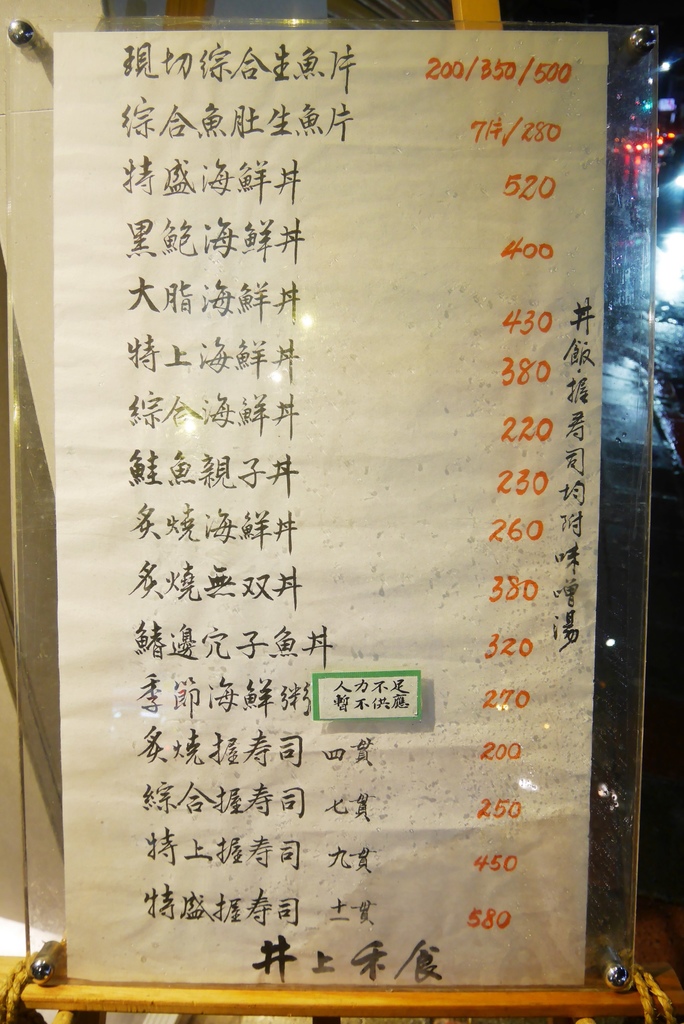 現切綜合生魚片 200/350/500
綜合魚肚生魚片 7片/280
特盛海鮮丼 520
黑鮑海鮮丼 400
大脂海鮮丼 430
特上海鮮丼 380
綜合海鮮丼 220
鮭魚親子丼 230
炙燒海鮮丼 260
炙燒無双丼 380
鰆邊穴子魚丼 320
季節海鮮粥 270
人力不足
暫不供應
炙燒握寿司 四貫 200
綜合握寿司 七貫 250
特上握寿司 九貫 450
特盛握寿司 十一貫 580
丼飯·握寿司均附味噌湯
井上禾食